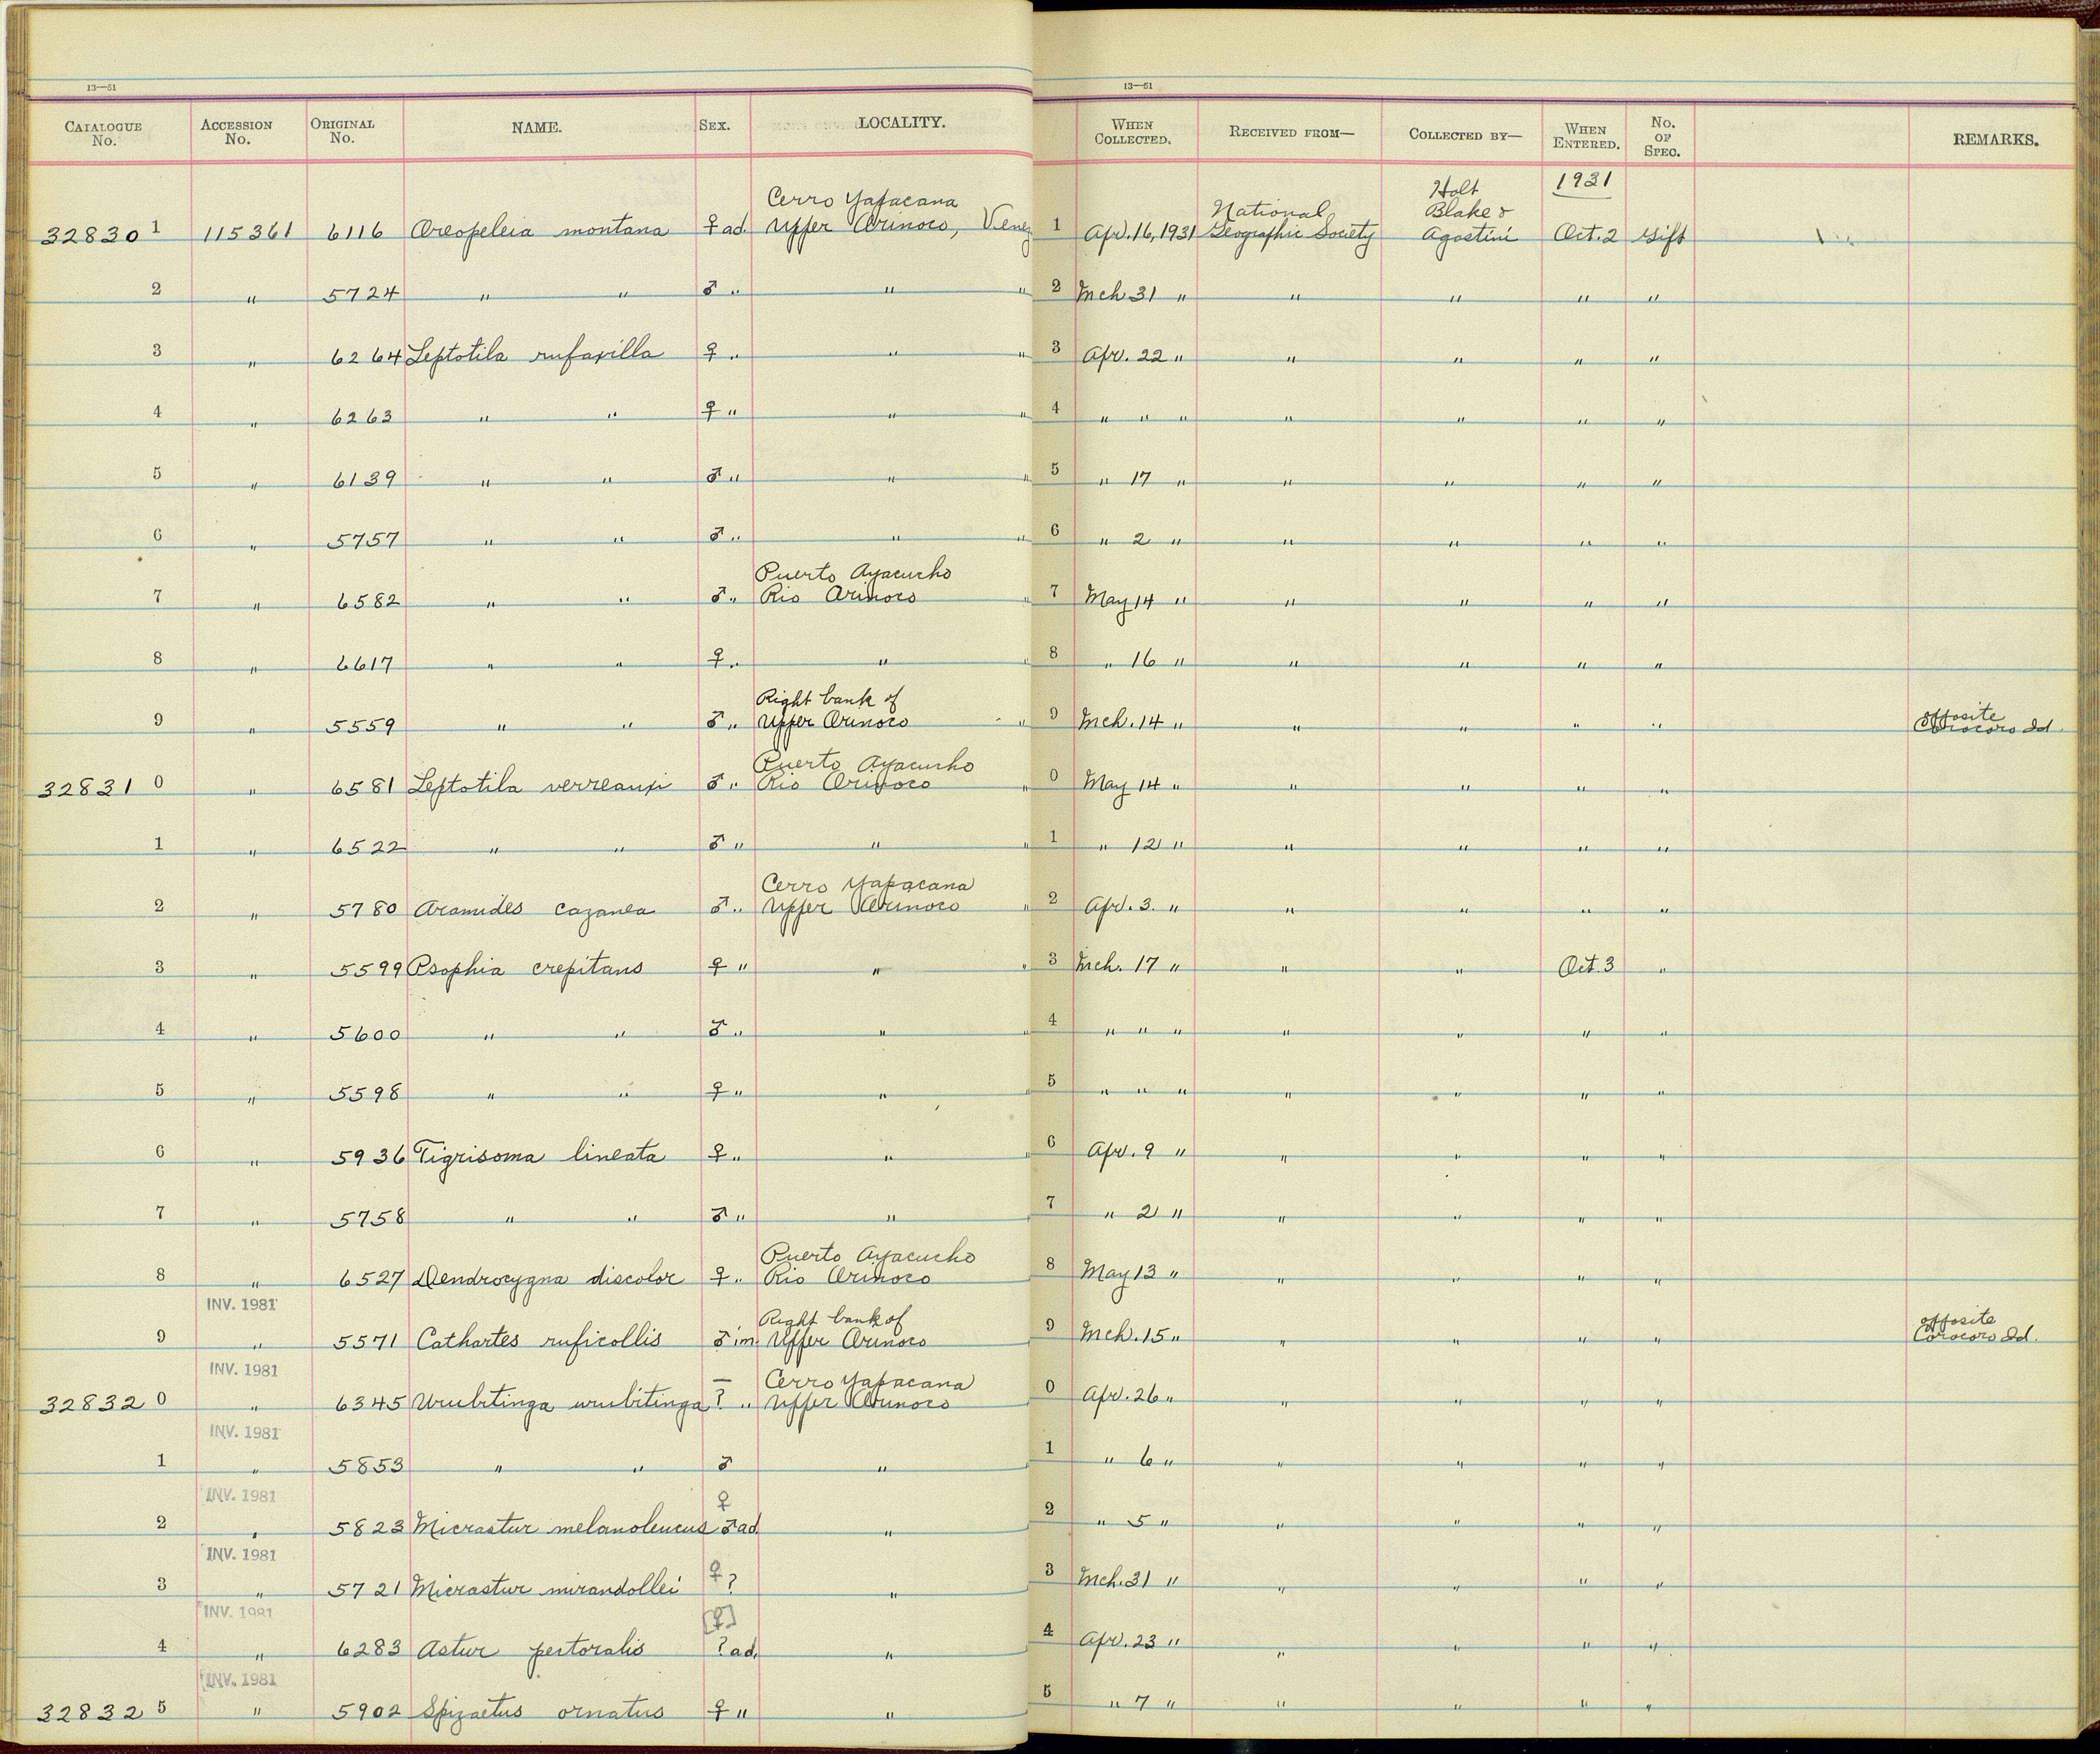 13—51 13—51
CATALOGUE No. ACCESSION No. ORIGINAL No. NAME. SEX. LOCALITY. WHEN COLLECTED. RECEIVED FROM— COLLECTED BY— WHEN ENTERED. No. OF SPEC. REMARKS.
Cerro Yapacana Holt 1931
National Blake &
32830 1 115361 6116 Oreopeleia montana ♀ ad. Upper Orinoco, Venez 1 Apr. 16, 1931 Geographic Society Agostini Oct. 2 Gift
2 " 5724 " " ♂ " " " 2 Mch. 31 " " " " "
3 " 6264 Leptotila rufaxilla ♀ " " " 3 Apr. 22 " " " " "
4 " 6263 " " ♀ " " " 4 " " " " " " "
5 " 6139 " " ♂ " " " 5 " 17 " " " " "
6 " 5757 " " ♂ " " " 6 " 2 " " " " "
Puerto Ayacucho
7 " 6582 " " ♂ " Rio Orinoco " 7 May 14 " " " " "
8 " 6617 " " ♀ " " " 8 " 16 " " " " "
Right bank of opposite
9 " 5559 " " ♂ " Upper Orinoco " 9 Mch. 14 " " " " " Corocoro Id.
Puerto Ayacucho
32831 0 " 6581 Leptotila verreauxi ♂ " Rio Orinoco " 0 May 14 " " " " "
1 " 6522 " " ♂ " " " 1 " 12 " " " " "
Cerro Yapacana
2 " 5780 Aramides cazanea ♂ " Upper Orinoco " 2 Apr. 3. " " " " "
3 " 5599 Psophia crepitans ♀ " " " 3 Mch. 17 " " " Oct. 3 "
4 " 5600 " " ♂ " " " 4 " " " " " " "
5 " 5598 " " ♀ " " " 5 " " " " " " "
6 " 5936 Tigrisoma lineata ♀ " " " 6 Apr. 9 " " " " "
7 " 5758 " " ♂ " " 7 " 2 " " " " "
Puerto Ayacucho
8 " 6527 Dendrocygna discolor ♀ " Rio Orinoco 8 May 13 " " " " "
INV. 1981 Right bank of opposite
9 " 5571 Cathartes ruficollis ♂ im. Upper Orinoco 9 Mch. 15 " " " " " Corocoro Id.
INV. 1981 — Cerro Yapacana
32832 0 " 6345 Urubitinga urubitinga ? " Upper Orinoco 0 Apr. 26 " " " " "
INV. 1981
1 " 5853 " " ♂ " 1 " 6 " " " " "
INV. 1981 ♀
2 " 5823 Micrastur melanoleucus ♂ ad. " 2 " 5 " " " " "
INV. 1981 ♀
3 " 5721 Micrastur mirandollei ? " 3 Mch. 31 " " " " "
INV. 1981 [♀]
4 " 6283 Astur pectoralis ? ad. " 4 Apr. 23 " " " " "
INV. 1981
32832 5 " 5902 Spizaetus ornatus ♀ " " 5 " 7 " " " " "